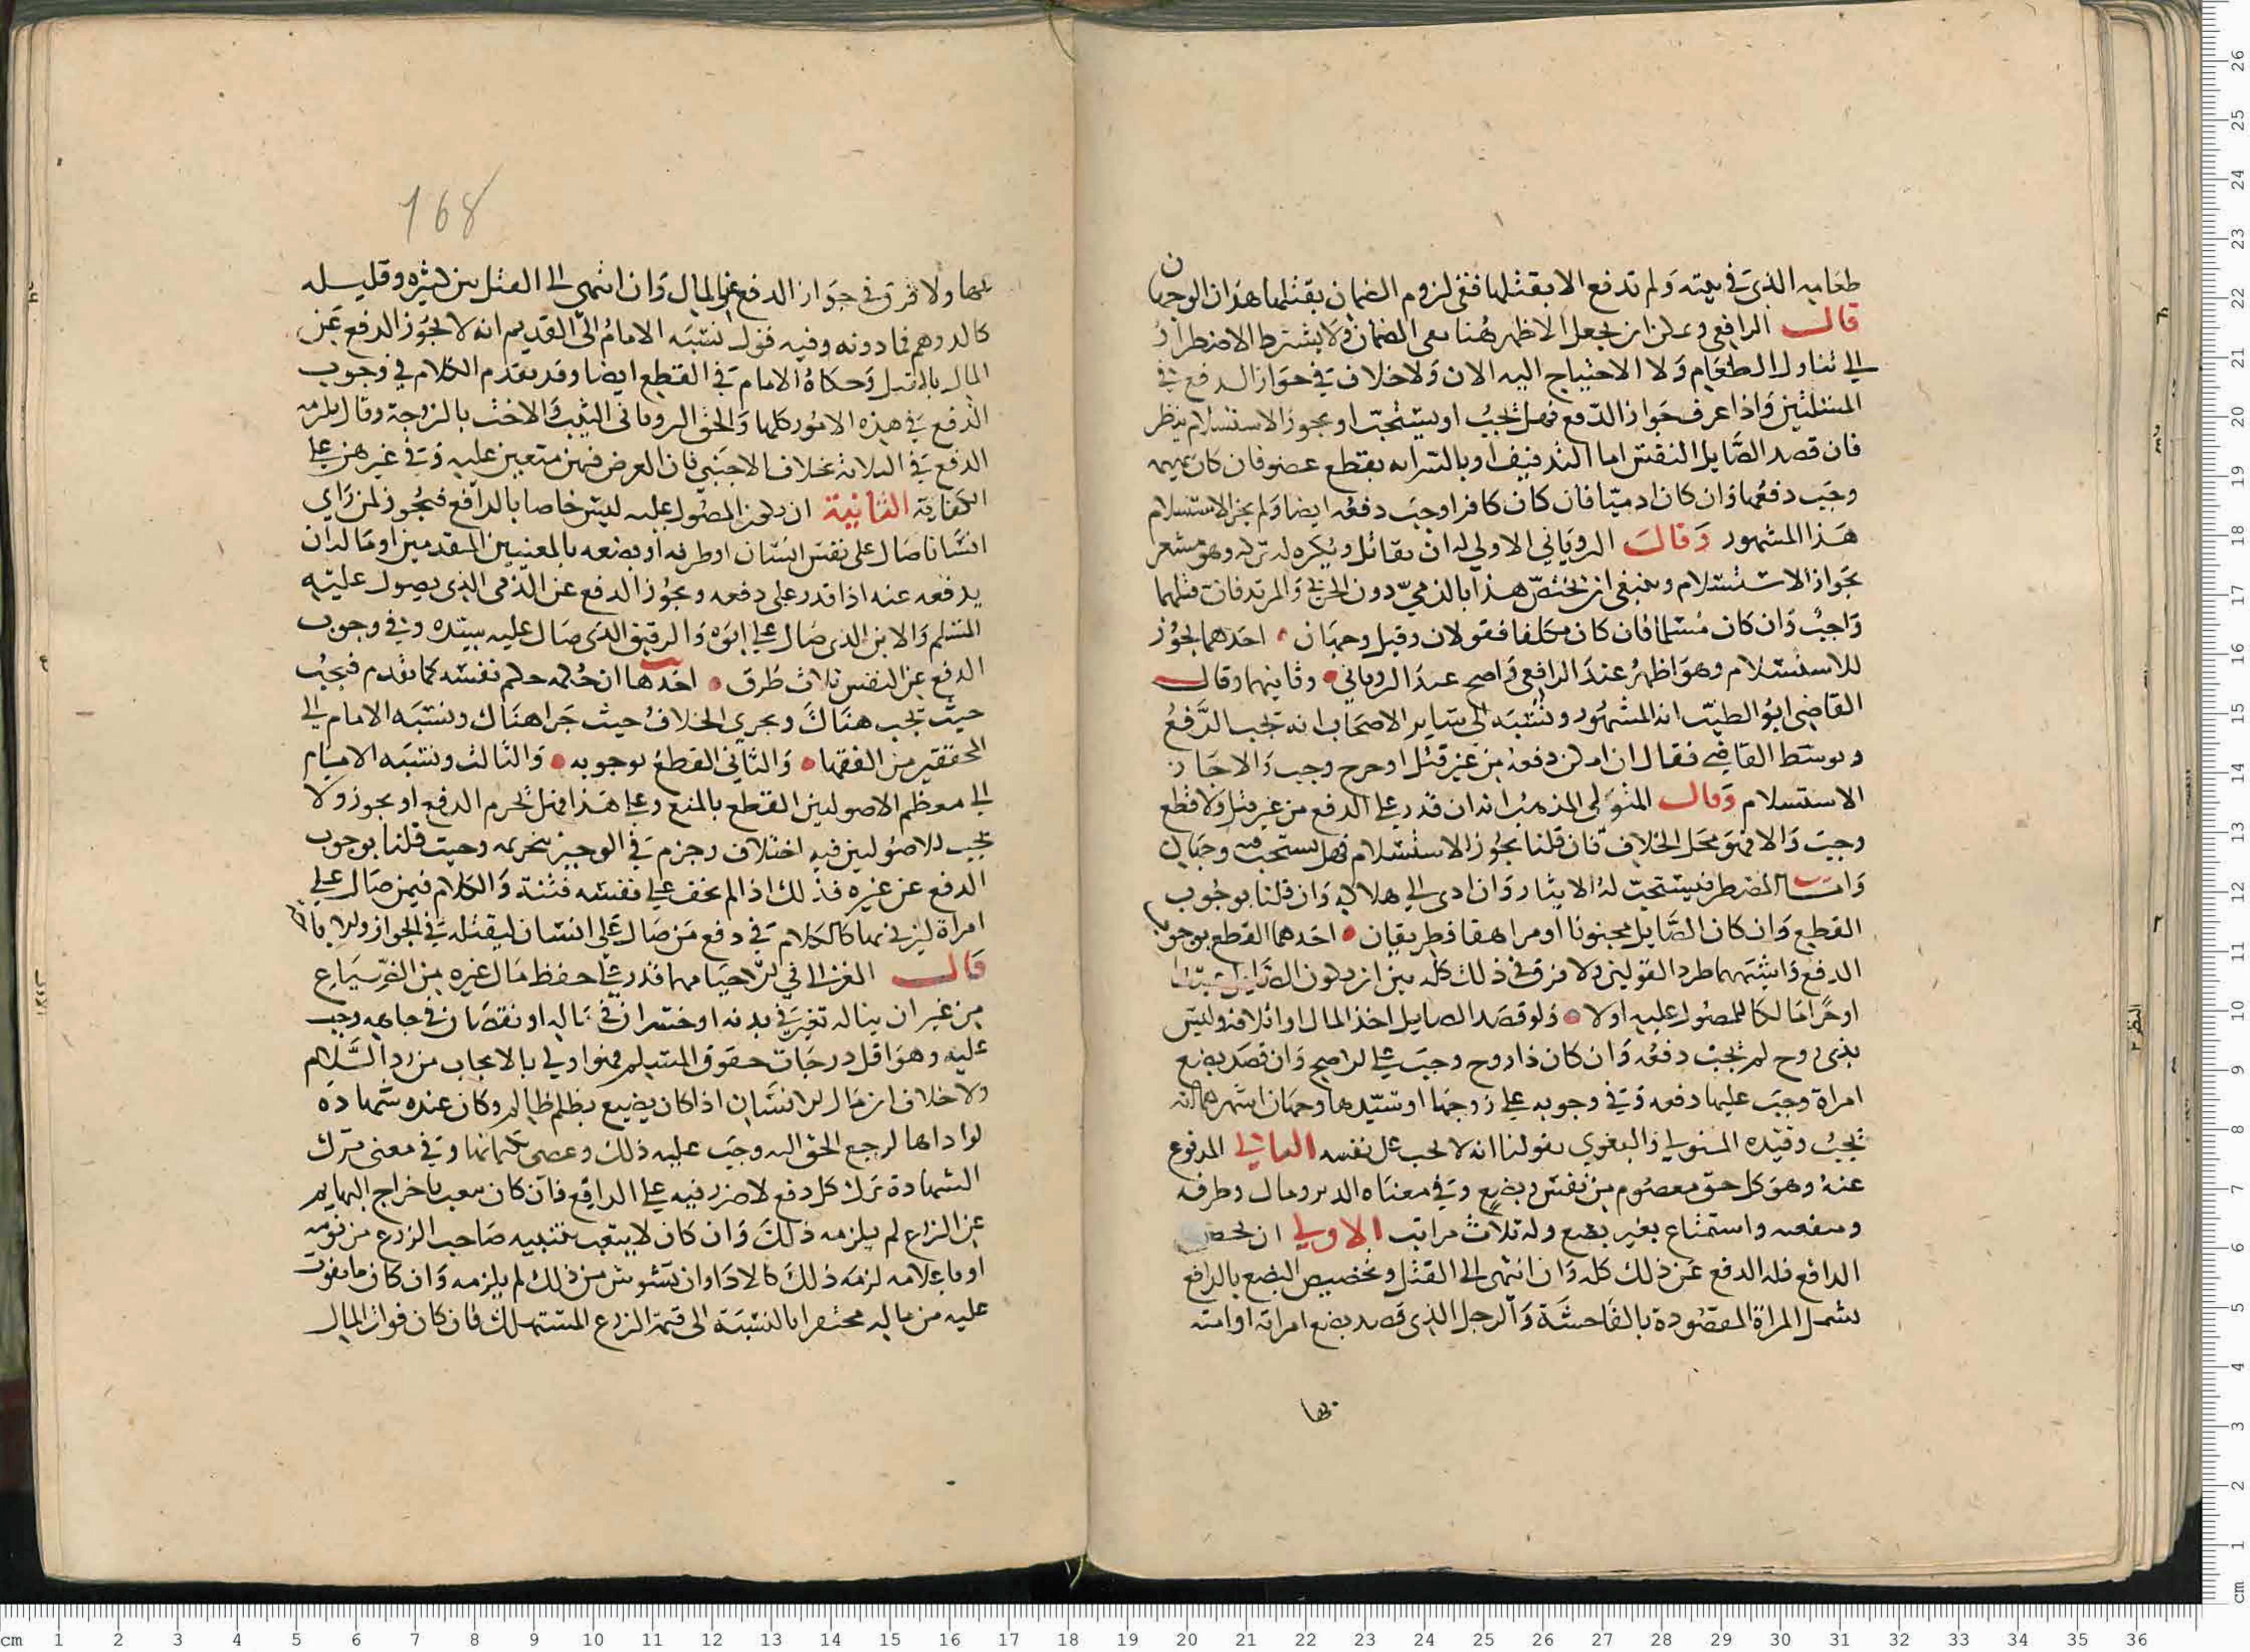 طعامه الذي في بيته ولم تدفع الا بقتلها ففي لزوم الضمان بقتلها هذان الوجهان
قال الرافعي ويمكن ان يجعل الاظهر هنا نفي الضمان ولا يشترط الاضطرار
الي تناول الطعام ولا الاحتياج اليه الان ولا خلاف في جواز الدفع في
المسئلتين واذا عرف جواز الدفع فهل يجب او يستحب او يجوز الاستسلام ينظر
فان قصد الصايل النفس اما التدفيف او بالسراية بقطع عضو فان كان بهيمه
وجب دفعها وان كان ادميا فان كان كافرا وجب دفعه ايضا ولم يجز الاستسلام
هذا المشهور وقال الروياني الاولي له ان يقاتل ويكره له تركه وهو مشعر
بجواز الاستسلام وينبغي ان يختص هذا بالذمي دون الحربي والمرتد فان قتلهما
واجب وان كان مسلما فان كان مكلفا فقولان وقيل وجهان احدهما يجوز
للاستسلام وهو اظهر عند الرافعي واصح عند الروياني وثانيهما وقال
القاضي ابو الطيب انه المشهور ونسبه الي ساير الاصحاب انه يجب الدفع
وتوسط القاضي فقال ان امكن دفعه من غير قتل او جرح وجب والا جاز
الاستسلام وقال المتولي المذهب انه ان قدر علي الدفع من غير قتل ولا قطع
وجب والا فهو محل الخلاف فان قلنا يجوز الاستسلام فهل يستحب فيه وجهان
واما المضطر فيستحب له الايثار وان ادى الي هلاكه وان قلنا بوجوب
القطع وان كان الصايل مجنونا او مراهقا فطريقان احدهما القطع بوجوب
الدفع واشبههما طرد القولين ولا فرق في ذلك كله بين ان يكون الصايل
او حرا مالكا للمصول عليه اولا ولو قصد الصايل اخذ المال او اتلافه وليس
بذي روح لم يجب دفعه وان كان ذا روح وجب علي الاصح وان قصد بضع
امراة وجب عليها دفعه وفي وجوبه علي زوجها او سيدها وجهان اشهرهما انه
يجب وقيده المتولي والبغوي بقولنا انه لا يجب عن نفسه الثاني المدفوع
عنه وهو كل حق معصوم من نفس وبضع وفي معناه الدبر ومال وطرف
ومنفعه واستمتاع بغير بضع وله ثلاث مراتب الاولي ان يخص
الدافع فله الدفع عن ذلك كله وان انتهى الى القتل وتخصيص البضع بالدافع
يشمل المراة المقصودة بالفاحشة والرجل الذي قصد بضع امراته او امته
بها
168
بها ولا فرق في جواز الدفع عن المال وان انتهى الى القتل بين كثيره وقليله
كالدرهم فما دونه وفيه قول نسبه الامام الى القديم انه لا يجوز الدفع عن
المال بالقتل وحكاه الامام في القطع ايضا وقد تقدم الكلام في وجوب
الدفع في هذه الامور كلها والحق الروياني البنت والاخت بالزوجة وقال يلزمه
الدفع في الثلاثة بخلاف الاجنبي فان الفرض فيهن متعين عليه وفي غيرهن علي
الكفاية الثانية ان يكون المصول عليه ليس خاصا بالدافع فيجوز لمن راي
انسانا صال على نفس انسان او طرفه او بضعه بالمعنيين المتقدمين او ماله ان
يدفعه عنه اذا قدر على دفعه ويجوز الدفع عن الذمي الذي يصول عليه
المسلم والابن الذي صال علي ابوه والرقيق الذي صال عليه سيده وفي وجوب
الدفع عن النفس ثلاث طرق احدها ان حكمه حكم نفسه كما تقدم فيجب
حيث يجب هناك ويجري الخلاف حيث جرا هناك ونسبه الامام الي
المحققين من الفقها والثاني القطع بوجوبه والثالث ونسبه الامام
الي معظم الاصوليين القطع بالمنع وعلي هذا فهل يحرم الدفع او يجوز ولا
يجب للاصوليين فيه اختلاف وجزم في الوجيز بتحريمه وحيث قلنا بوجوب
الدفع عن غيره فذلك اذا لم يخف علي نفسه فتنة والكلام فيمن صال علي
امراة ليزني بها كالكلام في دفع من صال علي انسان ليقتله في الجواز
قال الغزالي في الاحيا مهما قدر علي حفظ مال غيره من الضياع
من غير ان يناله تغير في بدنه او خسران في ماله او نقصان في جاهه وجب
عليه وهو اقل درجات حقوق المسلم فهو اولي بالايجاب من رد السلام
ولا خلاف ان مال الانسان اذا كان يضيع بظلم ظالم وكان عنده شهادة
لو اداها لرجع الحق اليه وجب عليه ذلك وعصى بكتمانها وفي معنى ترك
الشهادة ترك كل دفع لا ضرر فيه علي الدافع فان كان يتعب باخراج البهايم
عن الزرع لم يلزمه ذلك وان كان لا يتعب بتنبيه صاحب الزرع من نومه
او باعلامه لزمه ذلك كالاداء وان تشوش من ذلك لم يلزمه وان كان ما يفوت
عليه من ماله محتقرا بالنسبة الى قيمة الزرع المستهلك فان كان فوات المال